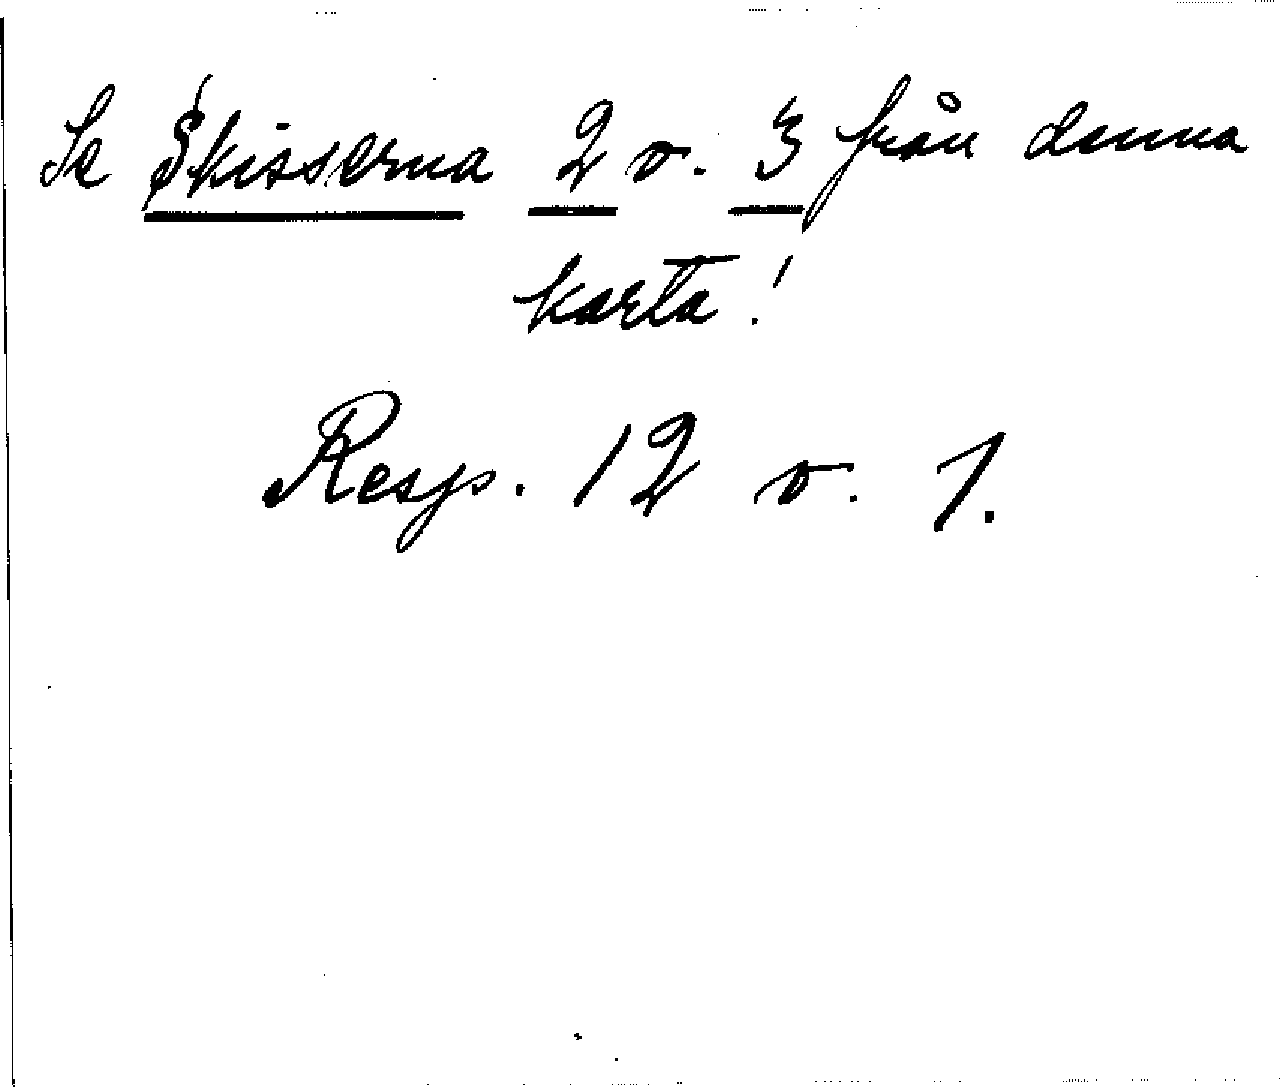 Se Skisserna 2 o. 3 från denna
karta!
Resp. 12 o. 1.